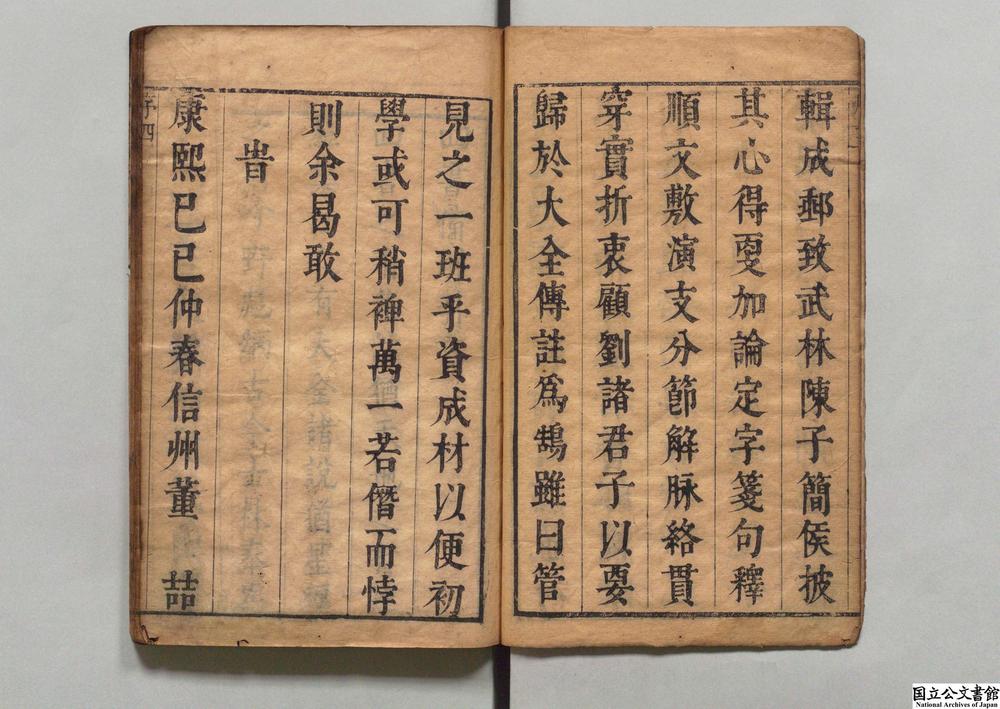 輯成郵致武林陳子簡侯披
其心得更加論定字箋句釋
順文敷演支分節解脉絡貫
穿實折衷顧劉諸君子以要
歸於大全傳註爲鵠雖曰管
見之一班乎資成材以便初
學或可稍裨萬一若僭而悖
則余曷敢
旹
康熙己巳仲春信州董喆
序四
国立公文書館
National Archives of Japan